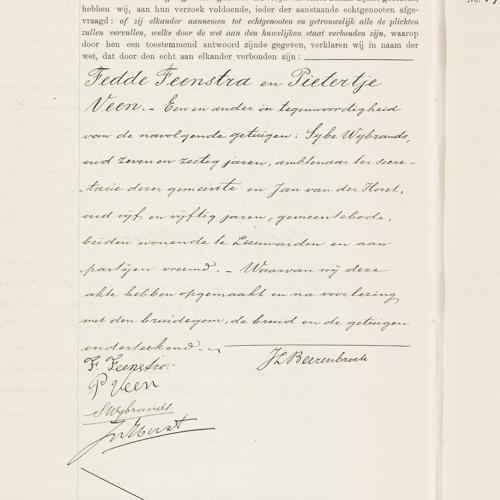 hebben wij, aan hun verzoek voldoende, ieder der aanstaande echtgenooten afge-
vraagd: of zij elkander aannemen tot echtgenooten en getrouwelijk alle de plichten
zullen vervullen, welke door de wet aan den huwelijken staat verbonden zijn, waarop
door hen een toestemmend antwoord zijnde gegeven, verklaren wij in naam der
wet, dat door den echt aan elkander verbonden zijn:
Fedde Feenstra en Pietertje
Veen. - Een en ander in tegenwoordigheid
van de navolgende getuigen: Sybe Wybrands,
oud zeven en zestig jaren, ambtenaar ter secre-
-tarie dezer gemeente en Jan van der Horst,
oud vijf en vijftig jaren, gemeentebode,
beiden wonende te Leeuwarden en aan
partijen vreemd. - Waarvan wij deze
akte hebben opgemaakt en na voorlezing
met den bruidegom, de bruid en de getuigen
onderteekend.
F. Feenstra.
JL Beerenbroek
P Veen
S Wybrands
JvdHorst